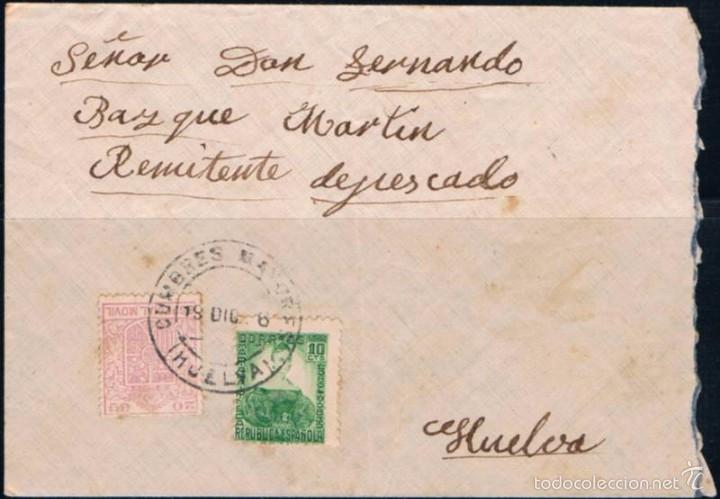 Señor Don Fernando
Bazque Martin
Remitente depescado
CUMBRES MAYORES
19 DIC. 6
(HUELVA)
AL MOVIL
20
CORREOS
10
CTS
REPUBLICA ESPAÑOLA
Huelva
todocoleccion.net